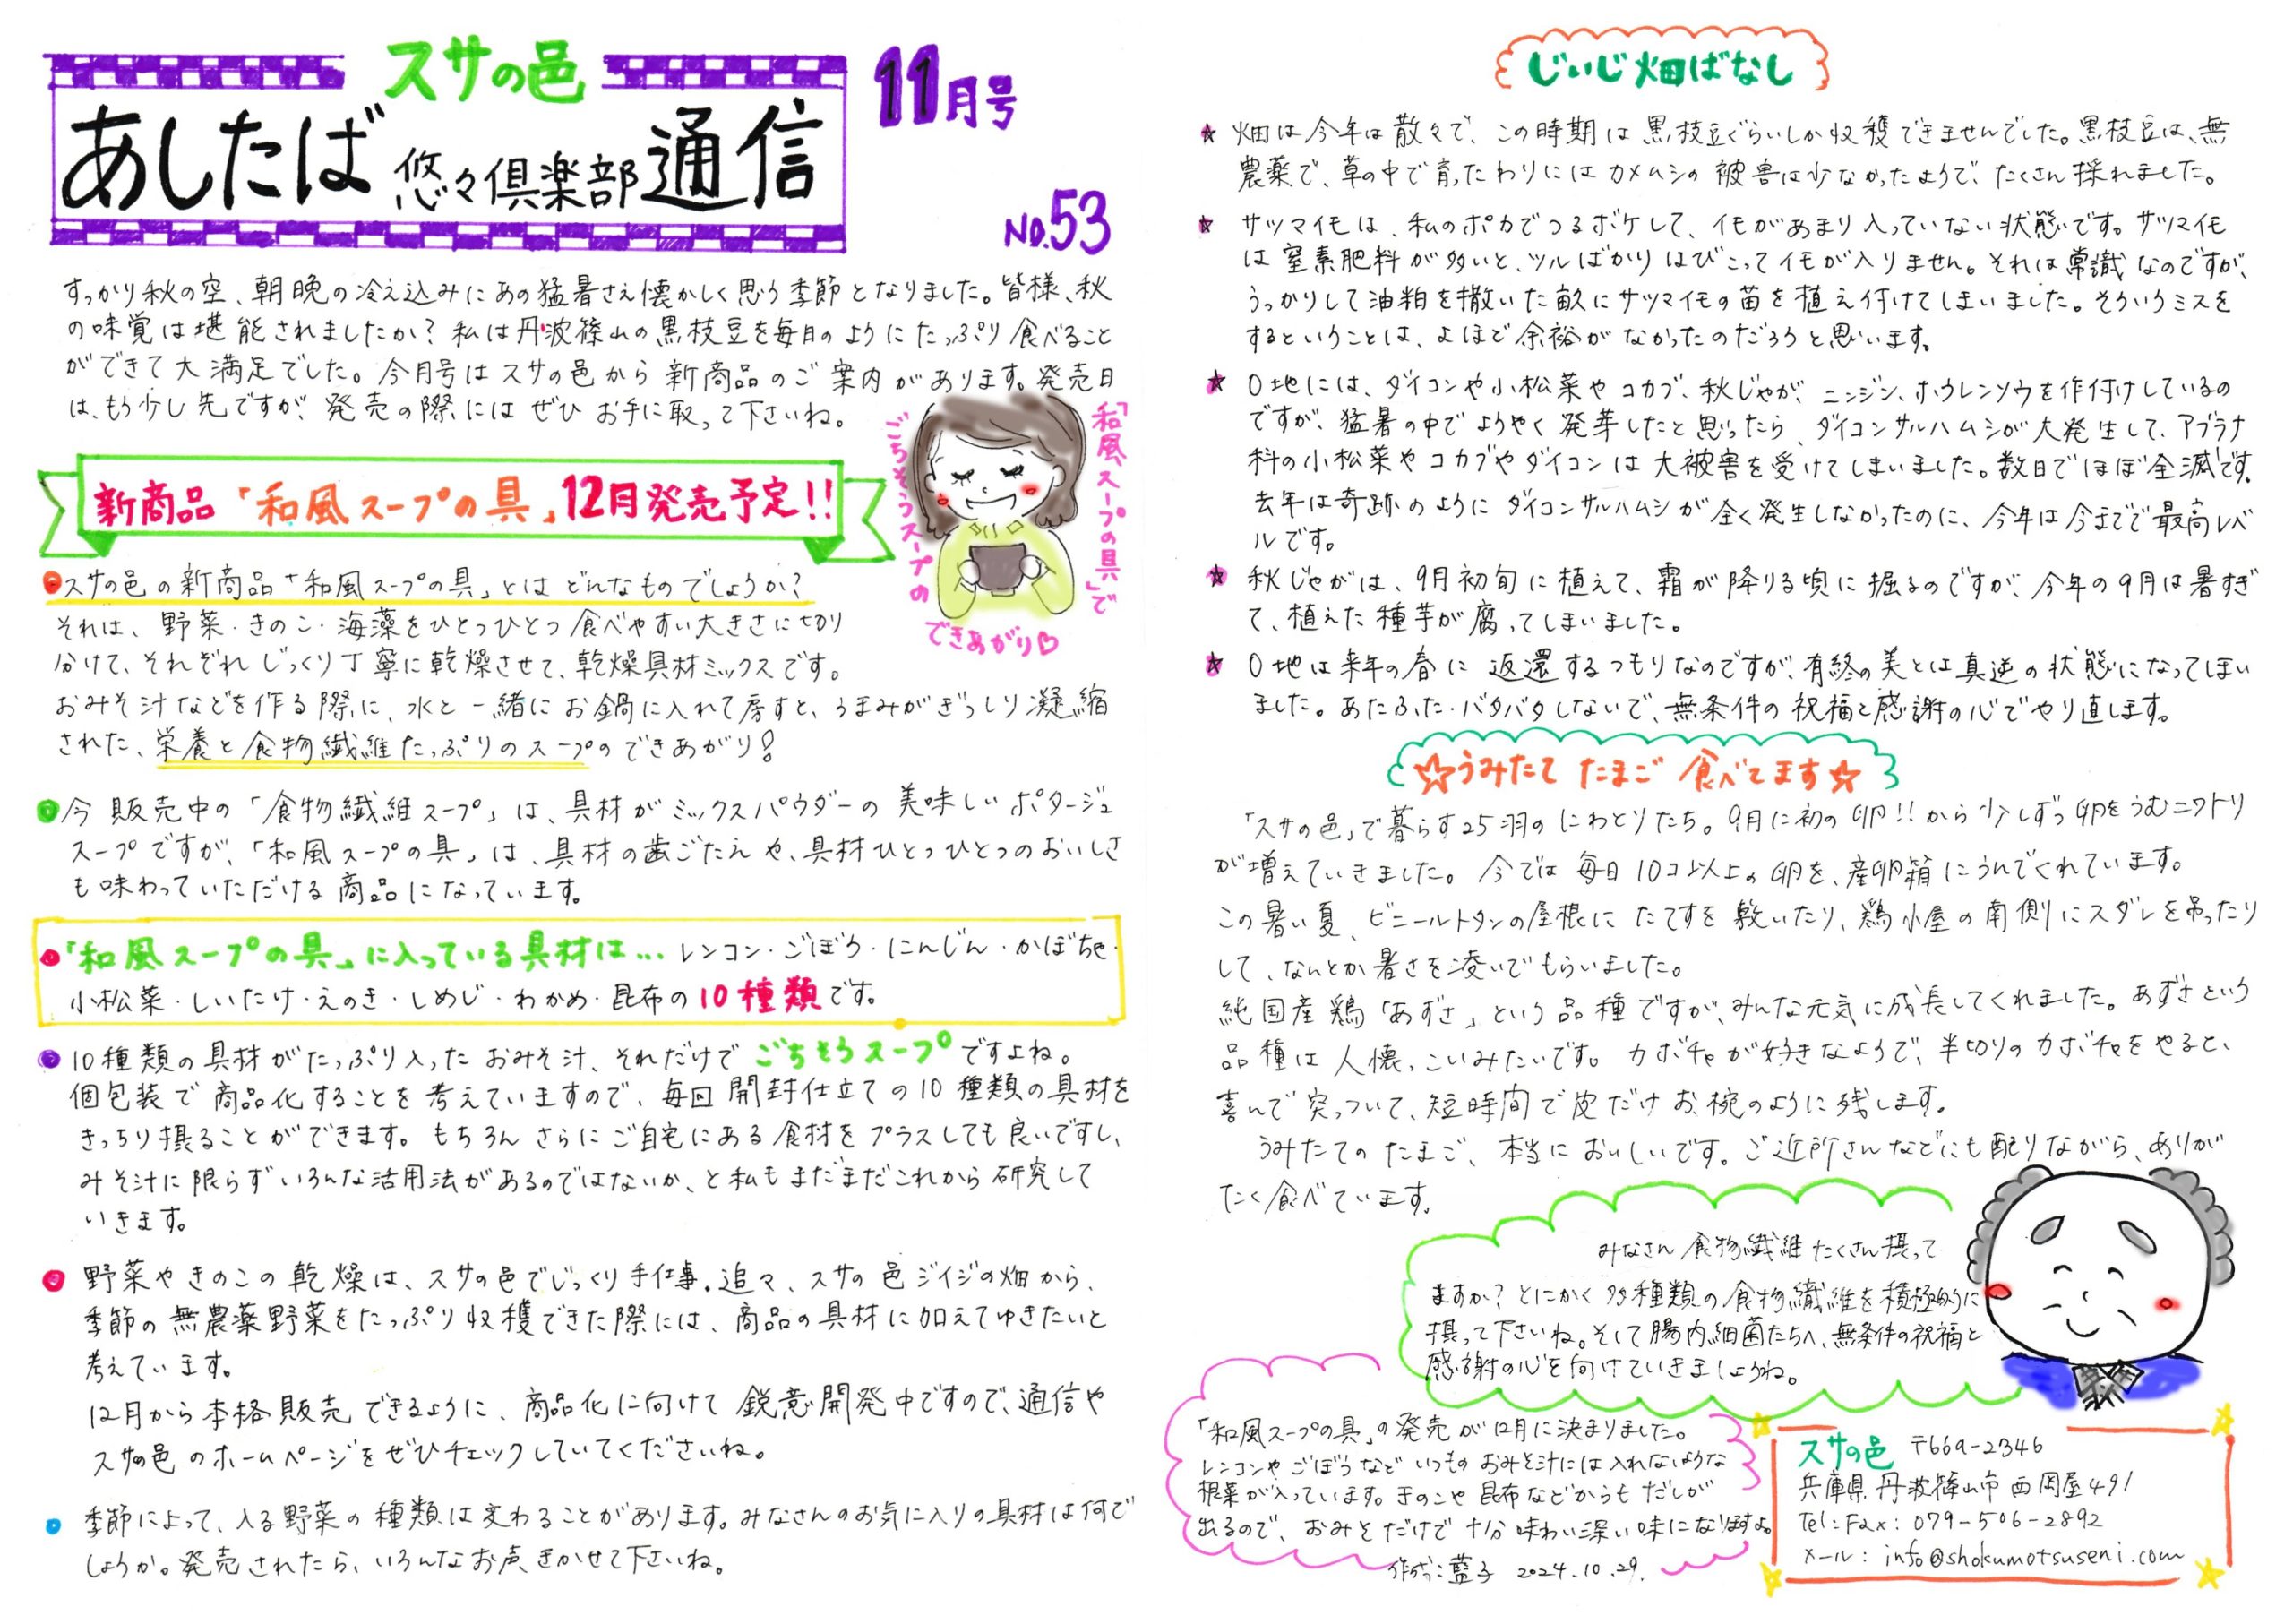 スサの邑
あしたば悠々倶楽部通信
11月号
No.53
すっかり秋の空、朝晩の冷え込みにあの猛暑さえ懐かしく思う季節となりました。皆様、秋
の味覚は堪能されましたか？私は丹波篠山の黒枝豆を毎日のようにたっぷり食べること
ができて大満足でした。今月号はスサの邑から新商品のご案内があります。発売日
は、もう少し先ですが、発売の際にはぜひお手に取って下さいね。
「和風スープの具」で
ごちそうスープの
できあがり♡
新商品「和風スープの具」12月発売予定!!
●スサの邑の新商品「和風スープの具」とはどんなものでしょうか？
それは、野菜・きのこ・海藻をひとつひとつ食べやすい大きさに切り
分けて、それぞれじっくり丁寧に乾燥させて、乾燥具材ミックスです。
おみそ汁などを作る際に、水と一緒にお鍋に入れて戻すと、うまみがぎっしり凝縮
された、栄養と食物繊維たっぷりのスープのできあがり！
●今販売中の「食物繊維スープ」は、具材がミックスパウダーの美味しいポタージュ
スープですが、「和風スープの具」は、具材の歯ごたえや、具材ひとつひとつのおいしさ
も味わっていただける商品になっています。
●「和風スープの具」に入っている具材は…レンコン・ごぼう・にんじん・かぼちゃ・
小松菜・しいたけ・えのき・しめじ・わかめ・昆布の10種類です。
●10種類の具材がたっぷり入ったおみそ汁、それだけでごちそうスープですよね。
個包装で商品化することを考えていますので、毎回開封仕立ての10種類の具材を
きっちり摂ることができます。もちろんさらにご自宅にある食材をプラスしても良いですし、
みそ汁に限らずいろんな活用法があるのではないか、と私もまだまだこれから研究して
いきます。
●野菜やきのこの乾燥は、スサの邑でじっくり手仕事。追々、スサの邑ジイジの畑から、
季節の無農薬野菜をたっぷり収穫できた際には、商品の具材に加えてゆきたいと
考えています。
12月から本格販売できるように、商品化に向けて鋭意開発中ですので、通信や
スサの邑のホームページをぜひチェックしていてくださいね。
●季節によって、入る野菜の種類は変わることがあります。みなさんのお気に入りの具材は何で
しょうか。発売されたら、いろんなお声きかせて下さいね。
じいじ畑ばなし
★畑は今年は散々で、この時期は黒枝豆ぐらいしか収穫できませんでした。黒枝豆は、無
農薬で、草の中で育ったわりにはカメムシの被害は少なかったようで、たくさん採れました。
★サツマイモは、私のポカでつるボケして、イモがあまり入っていない状態です。サツマイモ
は窒素肥料が多いと、ツルばかりはびこってイモが入りません。それは常識なのですが、
うっかりして油粕を撒いた畝にサツマイモの苗を植え付けてしまいました。そういうミスを
するということは、よほど余裕がなかったのだろうと思います。
★O地には、ダイコンや小松菜やコカブ、秋じゃが、ニンジン、ホウレンソウを作付けしているの
ですが、猛暑の中でようやく発芽したと思ったら、ダイコンサルハムシが大発生して、アブラナ
科の小松菜やコカブやダイコンは大被害を受けてしまいました。数日でほぼ全滅です。
去年は奇跡のようにダイコンサルハムシが全く発生しなかったのに、今年は今までで最高レベ
ルです。
★秋じゃがは、9月初旬に植えて、霜が降りる頃に掘るのですが、今年の9月は暑すぎ
て、植えた種芋が腐ってしまいました。
★O地は来年の春に返還するつもりなのですが、有終の美とは真逆の状態になってしまい
ました。あたふた・バタバタしないで、無条件の祝福と感謝の心でやり直します。
☆うみたてたまご食べてます☆
「スサの邑」で暮らす25羽のにわとりたち。9月に初の卵!!から少しずつ卵をうむニワトリ
が増えていきました。今では毎日10コ以上の卵を、産卵箱にうんでくれています。
この暑い夏、ビニールトタンの屋根にたてすを敷いたり、鶏小屋の南側にスダレを吊ったり
して、なんとか暑さを凌いでもらいました。
純国産鶏「あずさ」という品種ですが、みんな元気に成長してくれました。あずさという
品種は人懐っこいみたいです。カボチャが好きなようで、半切りのカボチャをやると、
喜んで突っついて、短時間で皮だけお椀のように残します。
うみたてのたまご、本当においしいです。ご近所さんなどにも配りながら、ありが
たく食べています。
みなさん食物繊維たくさん摂って
ますか？とにかく多種類の食物繊維を積極的に
摂って下さいね。そして腸内細菌たちへ、無条件の祝福と
感謝の心を向けていきましょうね。
「和風スープの具」の発売が12月に決まりました。
レンコンやごぼうなどいつものおみそ汁には入れないような
根菜が入っています。きのこや昆布などからもだしが
出るので、おみそだけで十分味わい深い味になりますよ。
作成：藍子 2024.10.29.
スサの邑 〒669-2346
兵庫県丹波篠山市西岡屋491
Tel：Fax：079-506-2892
メール：info@shokumotsuseni.com